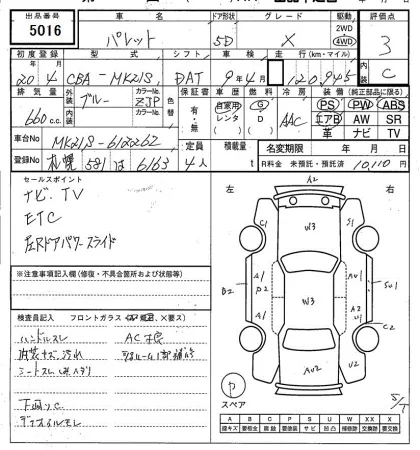 出品番号
5016
車名
パレット
ドア形状
5D
グレード
X
駆動
2WD
4WD
評価点
3
C
初度登録
20年4月
型式
CBA-MK21S
シフト
DAT
車検
9年4月
走行(km・マイル)
120,945
排気量
660 c.c.
外装
ブルー
カラーNo.
ZJP
内装
カラーNo.
色替
保証書
有・無
車歴
自家用
レンタ
燃料
G
D
冷房
AAC
装備(純正部品に限る)
PS PW ABS
エアB AW SR
革 ナビ TV
車台No
MK21S-6120262
定員
4人
積載量
t
名変期限 年 月 日
登録No
札幌 581 は 6163
R料金 未預託・預託済 10,110円
セールスポイント
ナビ、TV
ETC
左Rドアパワースライド
※注意事項記入欄(修復・不具合箇所および状態等)
検査員記入 フロントガラス
×要ス)
ハンドルスレ
AC不良
内装キズ汚れ
下廻りC
左 右
A2
C1
S1
W3
A1
AW1
B2
P2
W3
SU1
A1
A2
U1
C2
AU2
U2
S/T
ヤ
スペア
A B C P S U W X XX
線キズ 要板金 腐蝕 要塗装 サビ 凹凸 補修跡 交換跡 要交換